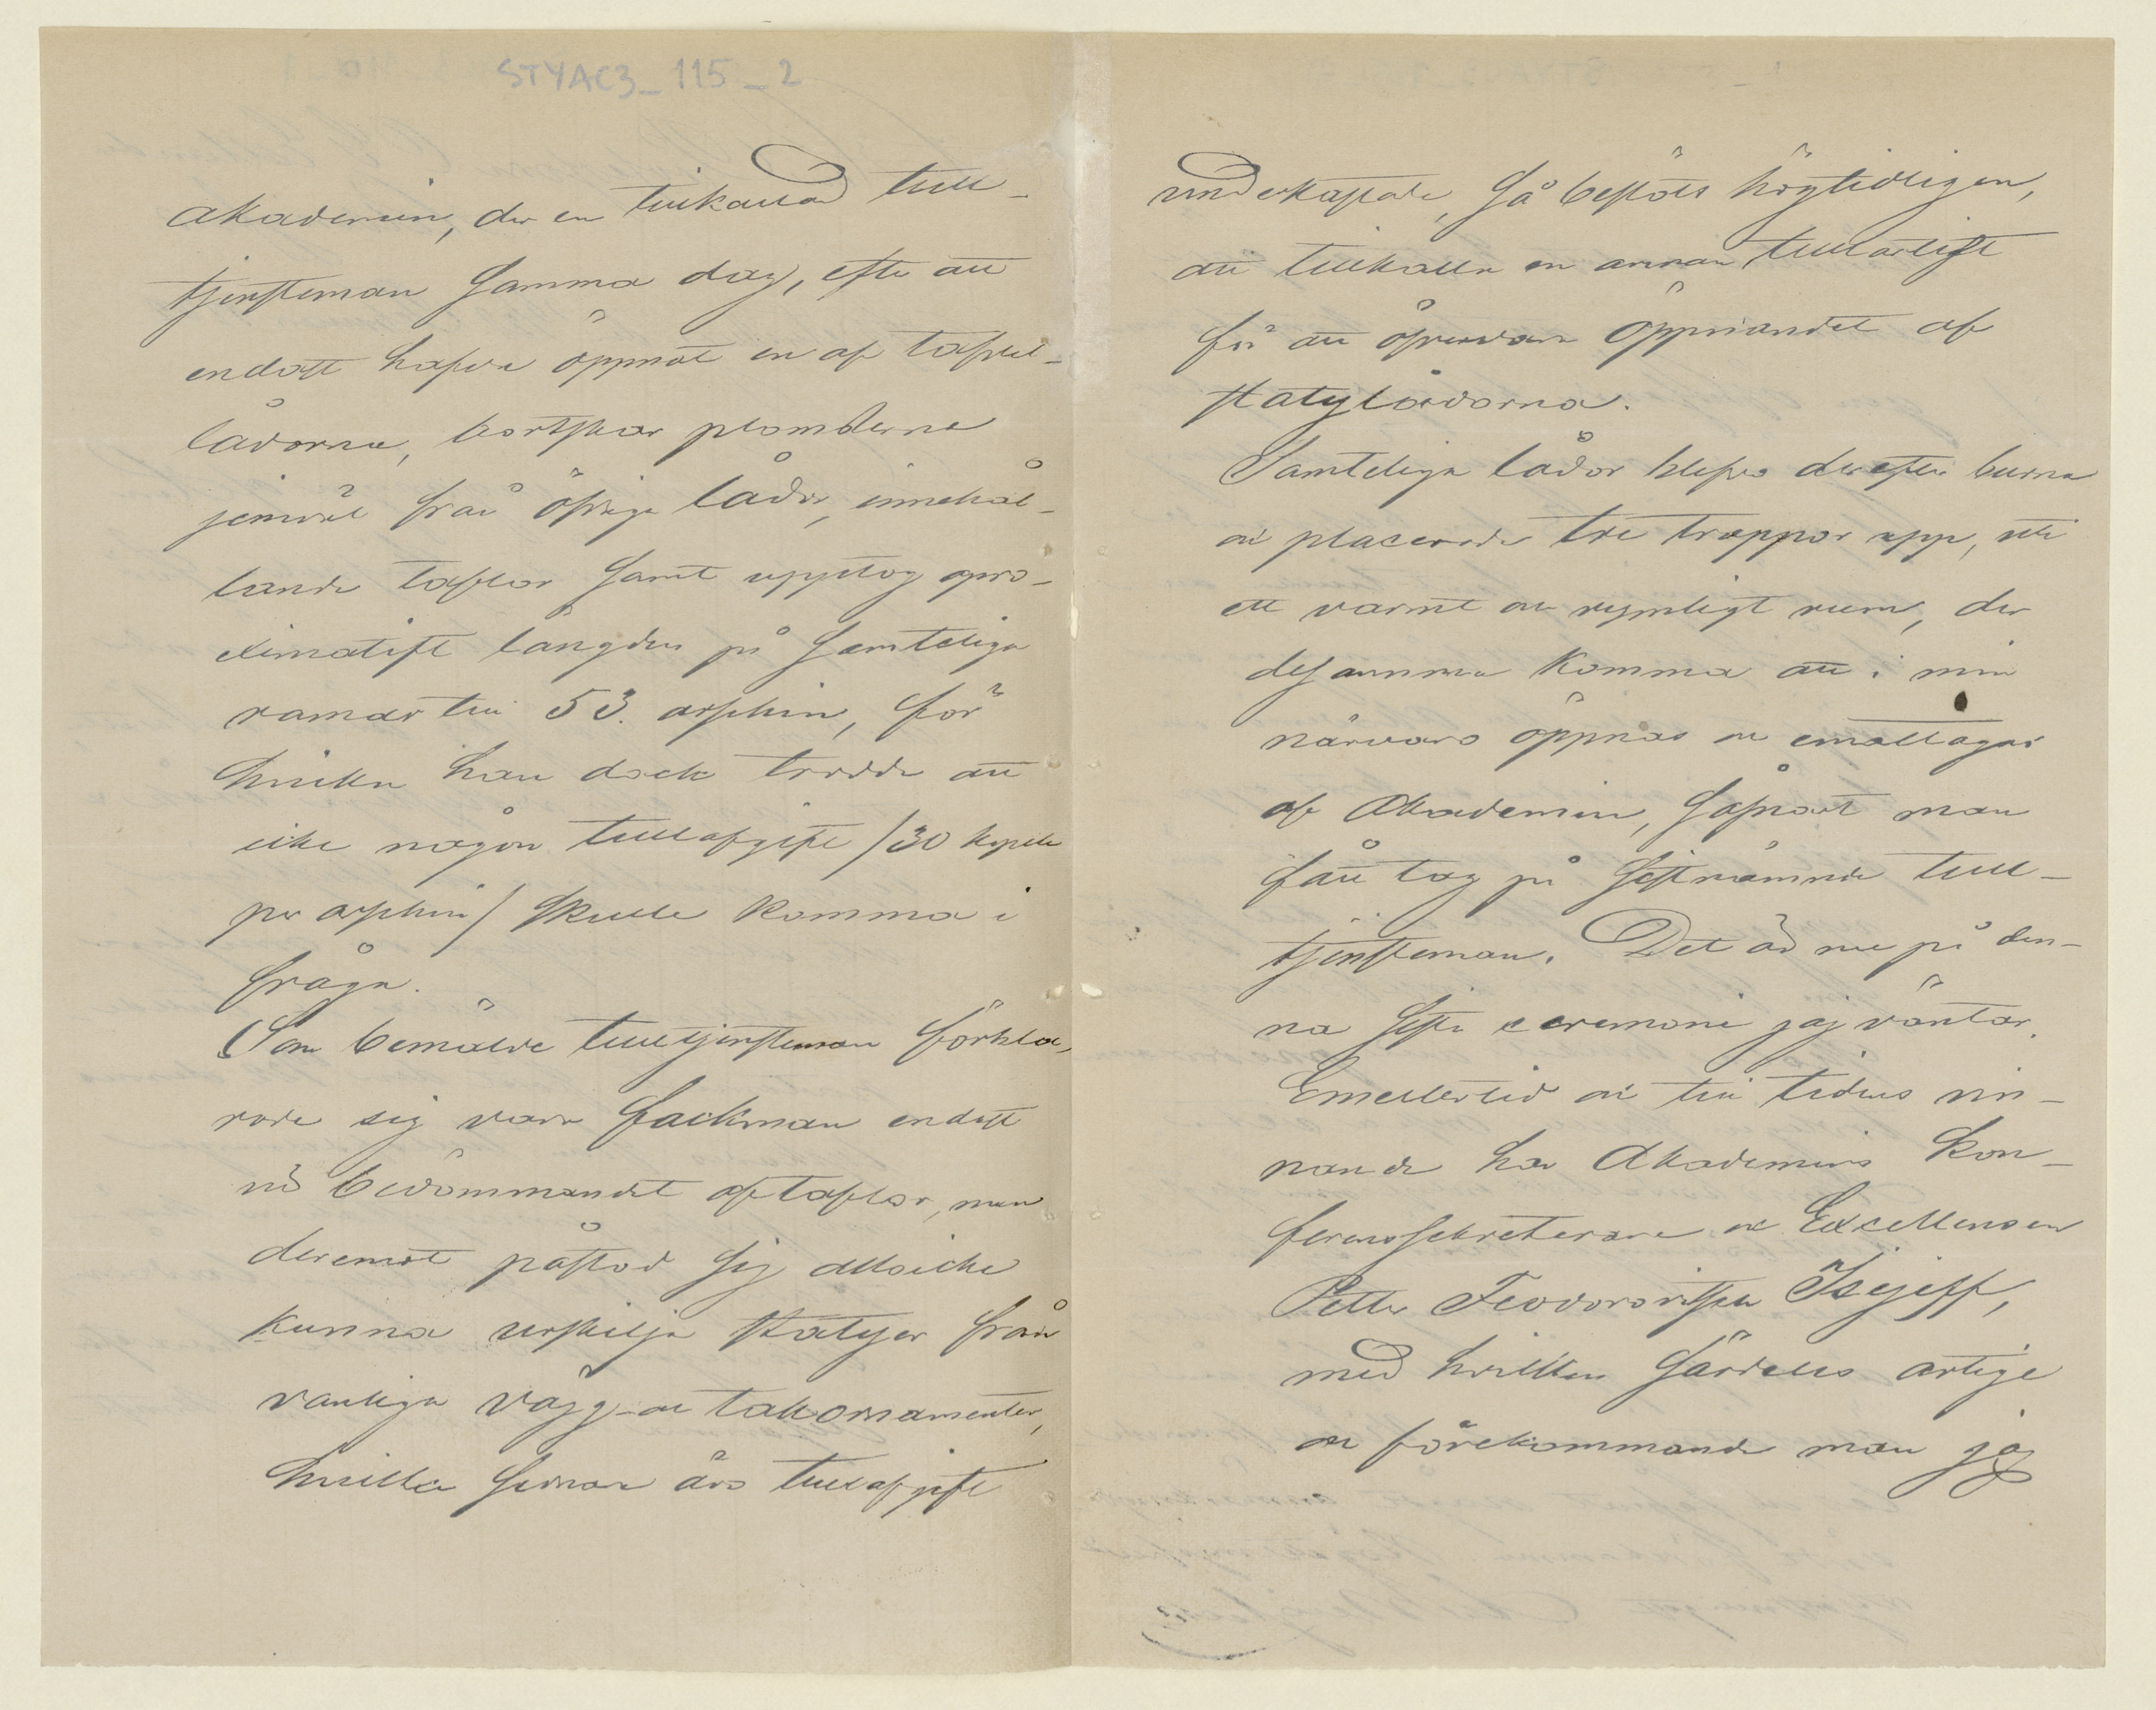 STYAC3_115_2
akademin, der en tillkallad tull-
tjensteman samma dag, efter att
endast hafva öppnat en af tafvel-
lådorna, bortskar plomberne
jemväl från öfriga lådor, innehål-
lande taflor samt upptog apro-
ximatift längden på samteliga
ramar till 53. arshin, för
hvilka han dock trodde att
icke någon tullafgift /30 kopek
per arshin/ skulle komma i
fråga.
Som bemälde tulltjensteman förkla-
rade sig vara fackman endast
vid bedömmandet af taflor, men
deremot påstod sig alls icke
kunna urskilja statyer från
vanliga vägg- och takornamenter,
hvilka sednare äro tullafgift
underkastade, så beslöts högtidligen,
att tillkalla en annan tullartist
för att öfvervara öppnandet af
statylådorna.
Samteliga lådor blefvo derefter burna
och placerade tre trappor upp, uti
ett varmt och rymligt rum, der
desamma komma att i min
närvaro öppnas och emottagas
af Akademin, såsnart man
fått tag på sistnämnde tull-
tjensteman. Det är nu på den-
na sista ceremoni jag väntar.
Emellertid och till tidens vin-
nande har Akademins kon-
ferenssekreterare och Excellensen
Petter Feodorovitsch Isejeff,
med hvilken särdeles artige
och förekommande man jag